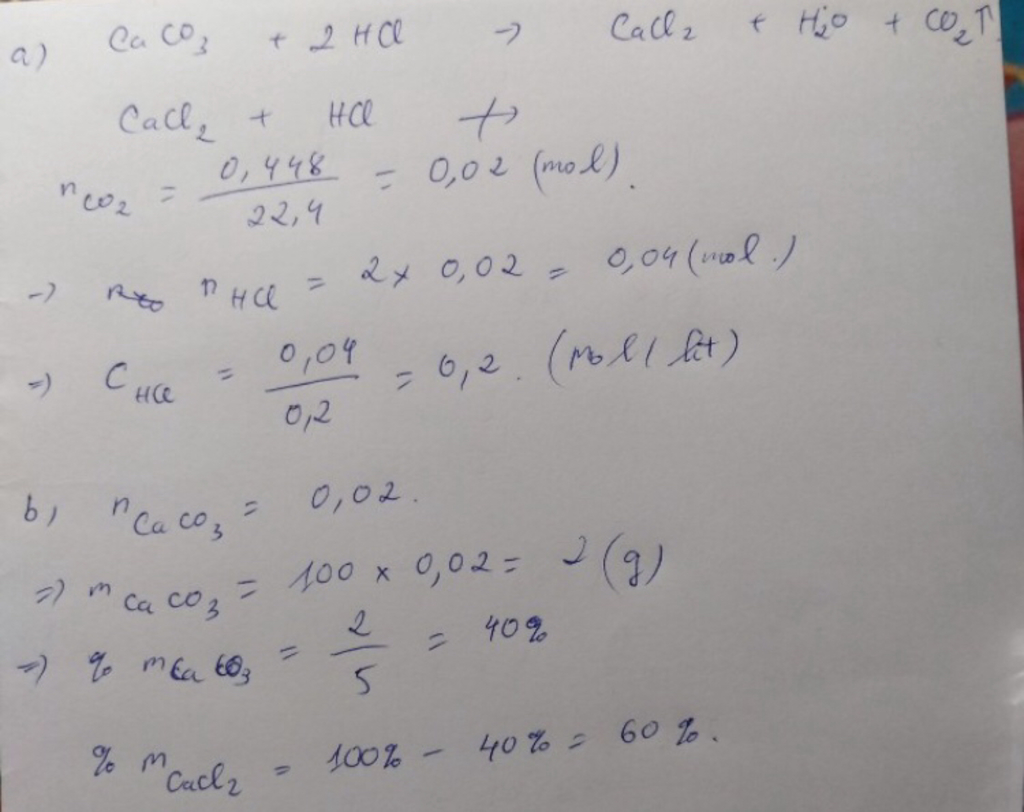 a) CaCO₃ + 2 HCl → CaCl₂ + H₂O + CO₂↑
CaCl₂ + HCl ↛
n CO₂ = 0,448 / 22,4 = 0,02 (mol).
→ n HCl = 2 x 0,02 = 0,04 (mol.)
=> C HCl = 0,04 / 0,2 = 0,2. (mol/lit)
b, n CaCO₃ = 0,02.
=> m CaCO₃ = 100 x 0,02 = 2 (g)
=> % m CaCO₃ = 2 / 5 = 40%
% m CaCl₂ = 100% - 40% = 60%.